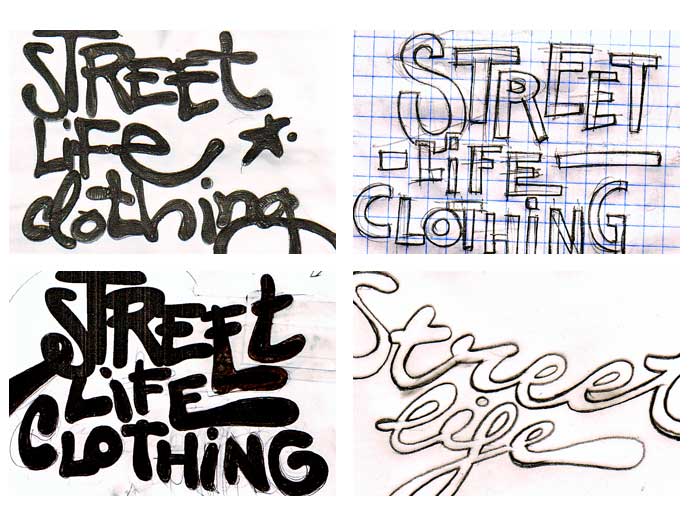 STREEt
LiFe
clothing
STREET
-LiFE-
CLOTHiNG
STREEt
LiFE
CLOTHiNG
Street
life